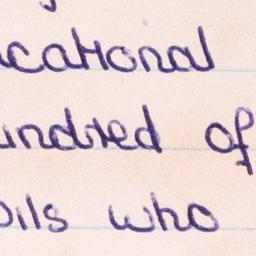 cational
undred of
pils who